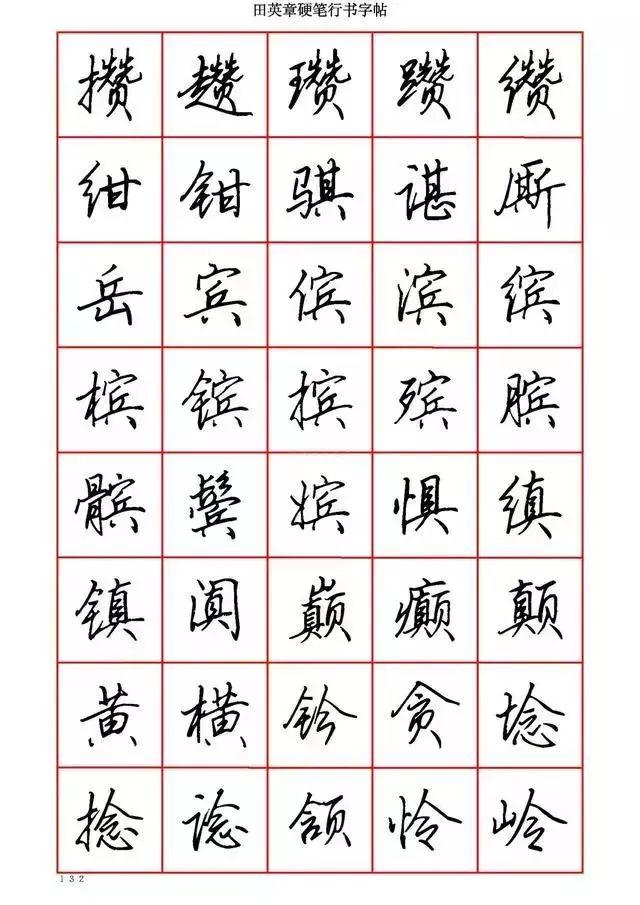 田英章硬笔行书字帖
攒趱瓒躜缵
绀钳骐谌厮
岳宾傧滨缤
槟镔摈殡膑
髌鬓嫔惧缜
镇阗巅癫颠
黄横钤贪埝
捻谂颔怜岭
132